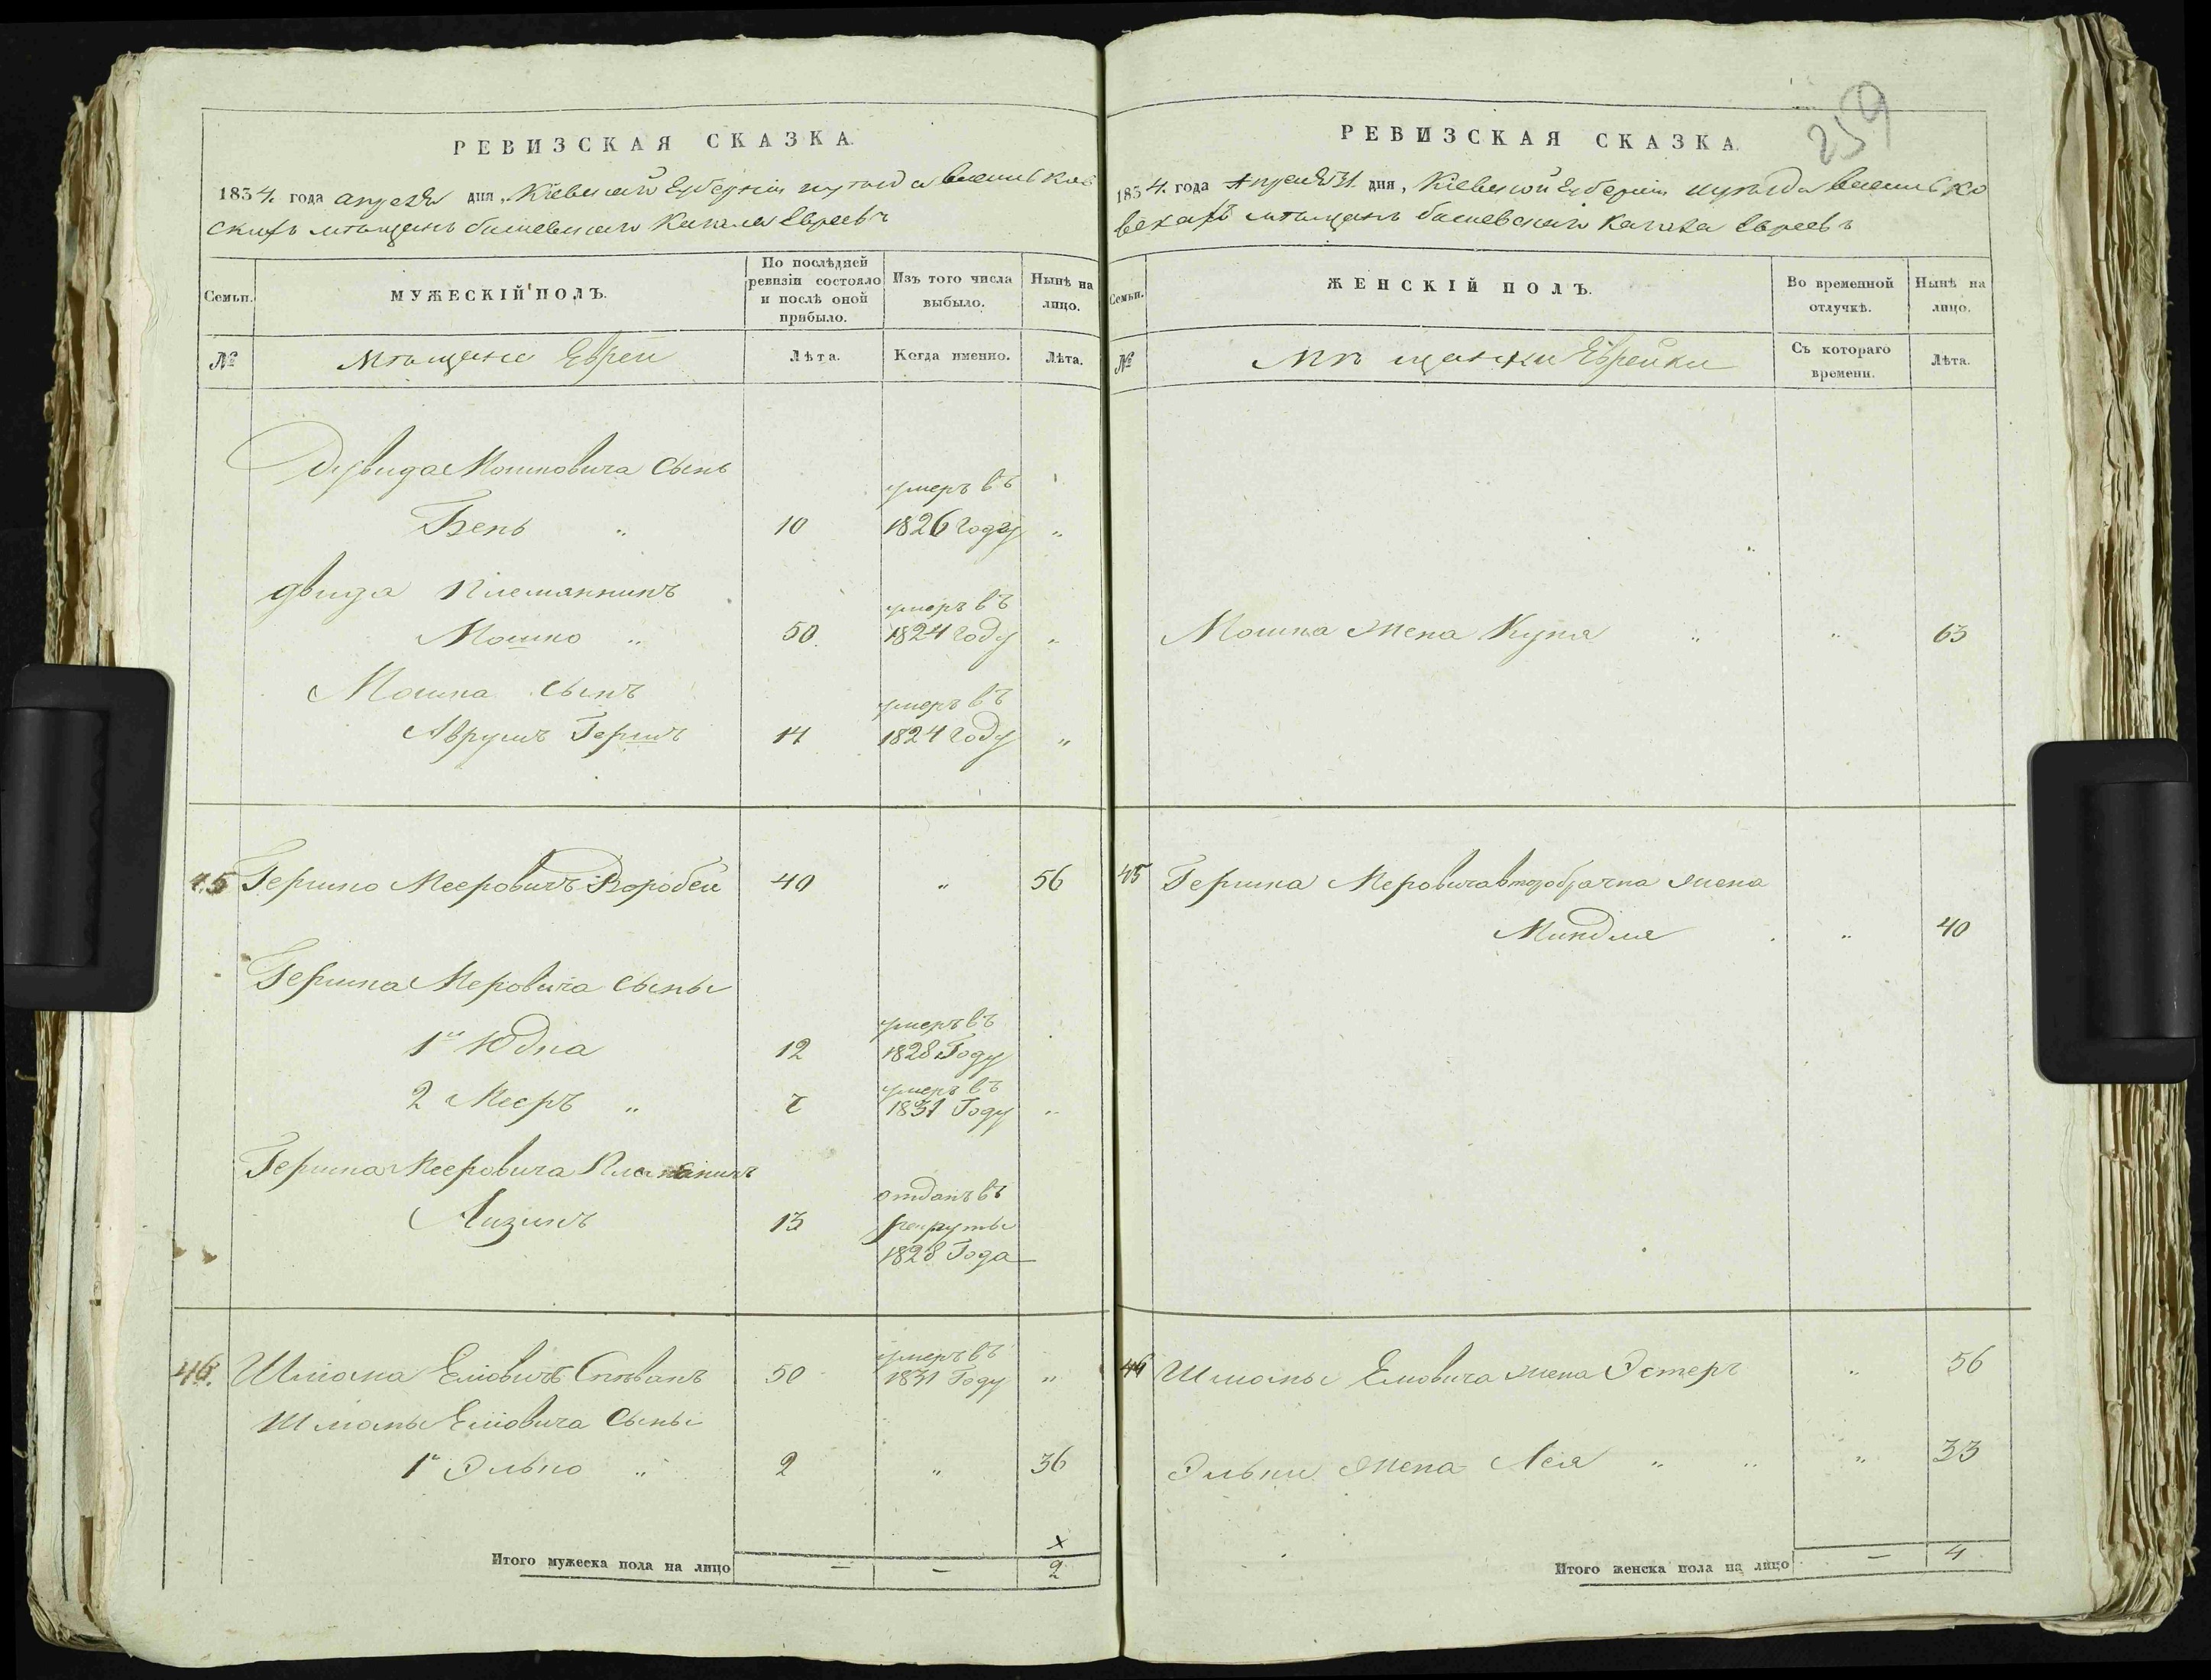 259
РЕВИЗСКАЯ СКАЗКА.
1834. года апреля дня, Кіевской Губерніи уезда
скихъ мѣщанъ Кагала Евреевъ
Семьи.
МУЖЕСКІЙ ПОЛЪ.
По послѣдней ревизіи состояло и послѣ оной прибыло.
Изъ того числа выбыло.
Нынѣ на лицо.
№
Мѣщане Евреи
Лѣта.
Когда именно.
Лѣта.
Дувида Мошковича сынъ
умеръ въ
Бень " 10 1826 году "
двида Племянникъ
умеръ въ
Мошко " 50. 1824 году "
Мошка сынъ
умеръ въ
Аврумъ Гершъ 14 1824 году "
45 Гершко Мееровичъ Воробей 40 " 56
Гершка Меровича сыны
умеръ въ
1й Юдка 12 1828 Году
умеръ въ
2 Мееръ " 7 1831 Году "
Гершка Мееровича
отданъ въ
Айзикъ 13 рекруты
1828 Года
умеръ въ
46. Шліома Еліовичъ Спѣвакъ 50 1831 Году "
Шліомы Еліовича сыны
1й Элько " 2 " 36
x
Итого мужеска пола на лицо — — 2
РЕВИЗСКАЯ СКАЗКА.
1834. года Апреля дня, Кіевской Губерніи уезда
мѣщанъ Кагала Евреевъ
Семьи.
ЖЕНСКІЙ ПОЛЪ.
Во временной отлучкѣ.
Нынѣ на лицо.
№
Мѣщанки Еврейки
Съ котораго времени.
Лѣта.
Мошка жена Куна " " 63
45 Гершка Меровича второбрачна жена
Миндля " 40
46 Шліомы Еліовича жена Эстеръ " 56
Эльки жена Лея " " " 33
Итого женска пола на лицо — 4